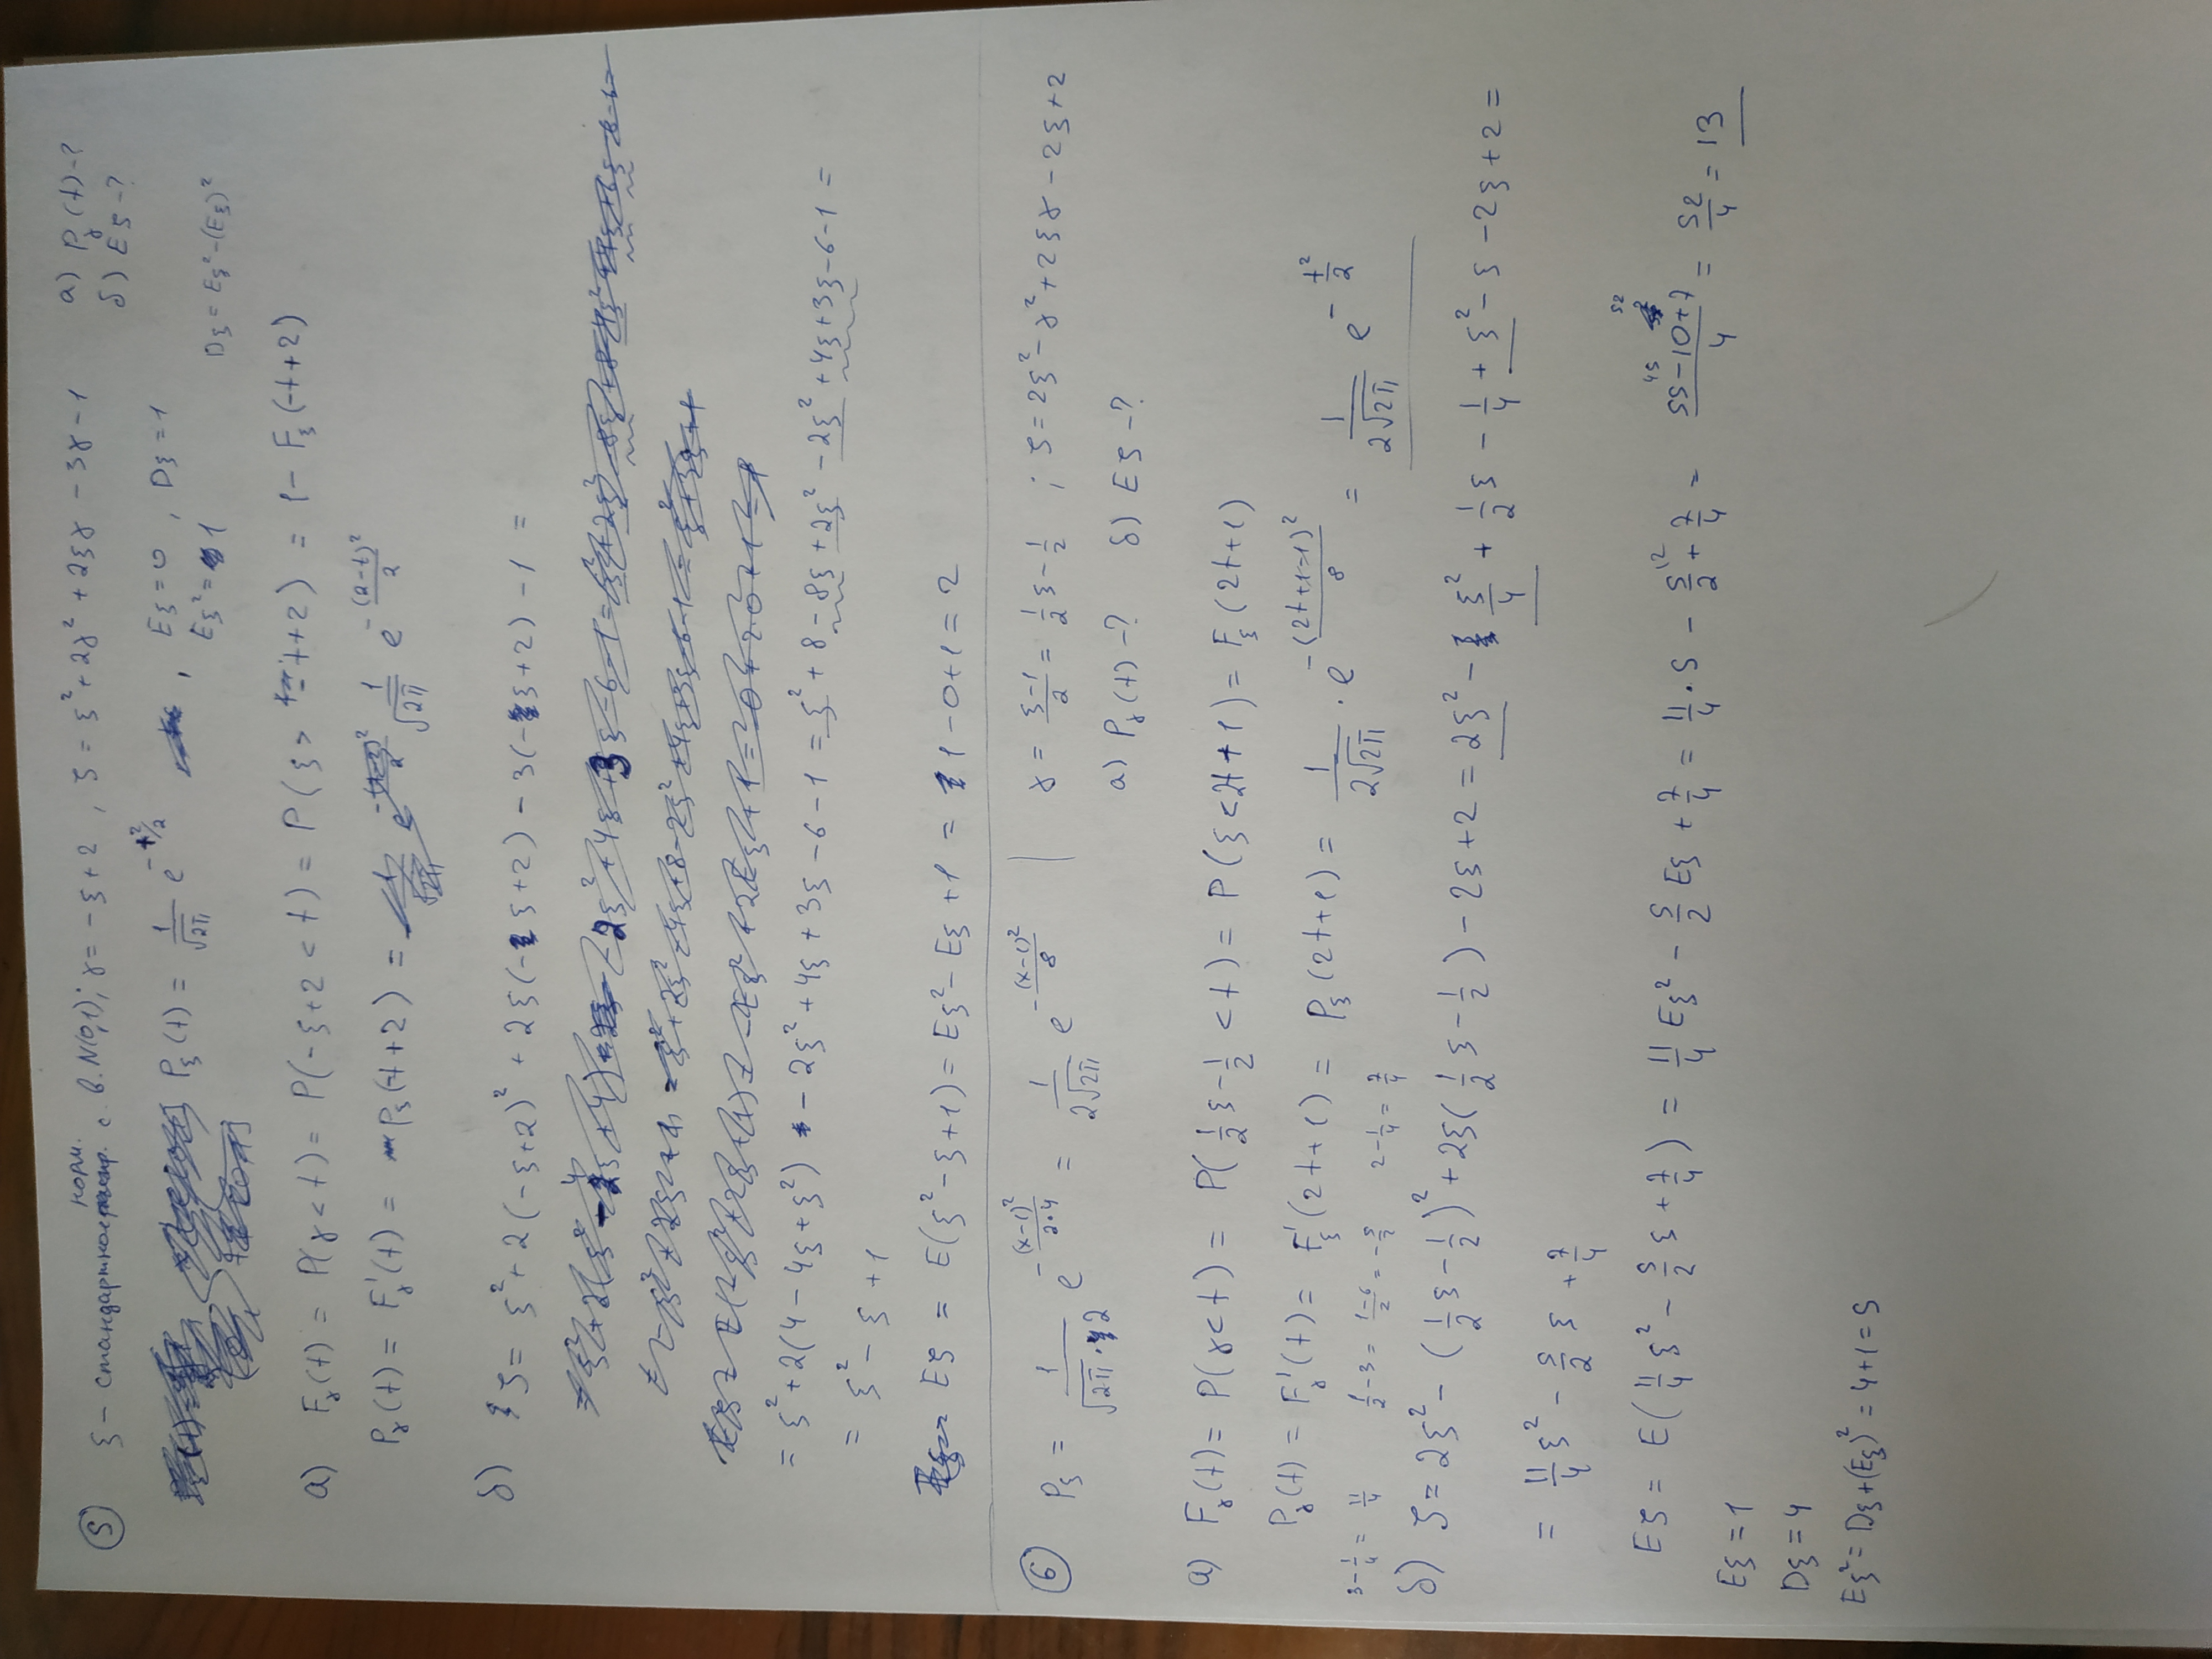 ⑤ ξ – стандартное норм. с. в. N(0,1); γ = -ξ+2 , ζ = ξ² + 2γ² + 2ξγ - 3γ - 1 а) P_γ(t) -?
б) Eζ -?
P_ξ(t) = 1/√2π e^(-t²/2) , Eξ = 0 , Dξ = 1
Eξ² = 1 Dξ = Eξ² - (Eξ)²
а) F_γ(t) = P(γ < t) = P(-ξ+2 < t) = P(ξ > -t+2) = 1 - F_ξ(-t+2)
P_γ(t) = F'_γ(t) = P_ξ(-t+2) = 1/√2π e^(-(2-t)²/2)
б) ζ = ξ² + 2(-ξ+2)² + 2ξ(-ξ+2) - 3(-ξ+2) - 1 =
= ξ² + 2(4 - 4ξ + ξ²) - 2ξ² + 4ξ + 3ξ - 6 - 1 = ξ² + 8 - 8ξ + 2ξ² - 2ξ² + 4ξ + 3ξ - 6 - 1 =
= ξ² - ξ + 1
Eζ = E(ξ² - ξ + 1) = Eξ² - Eξ + 1 = 1 - 0 + 1 = 2
⑥ P_ξ = 1/(√2π · 2) e^(-(x-1)²/(2·4)) = 1/(2√2π) e^(-(x-1)²/8) | γ = (ξ-1)/2 = 1/2 ξ - 1/2 ; ζ = 2ξ² - γ² + 2ξγ - 2ξ + 2
а) P_γ(t) -? б) Eζ -?
а) F_γ(t) = P(γ < t) = P(1/2 ξ - 1/2 < t) = P(ξ < 2t + 1) = F_ξ(2t+1)
P_γ(t) = F'_γ(t) = F'_ξ(2t+1) = P_ξ(2t+1) = 1/(2√2π) · e^(-(2t+1-1)²/8) = 1/(2√2π) e^(-t²/2)
3 - 1/4 = 11/4 1/2 - 3 = (1-6)/2 = -5/2 2 - 1/4 = 7/4
б) ζ = 2ξ² - (1/2 ξ - 1/2)² + 2ξ(1/2 ξ - 1/2) - 2ξ + 2 = 2ξ² - ξ²/4 + 1/2 ξ - 1/4 + ξ² - ξ - 2ξ + 2 =
= 11/4 ξ² - 5/2 ξ + 7/4
Eζ = E(11/4 ξ² - 5/2 ξ + 7/4) = 11/4 Eξ² - 5/2 Eξ + 7/4 = 11/4 · 5 - 5/2 + 7/4 = (55-10+7)/4 = 52/4 = 13
Eξ = 1
Dξ = 4
Eξ² = Dξ + (Eξ)² = 4+1 = 5